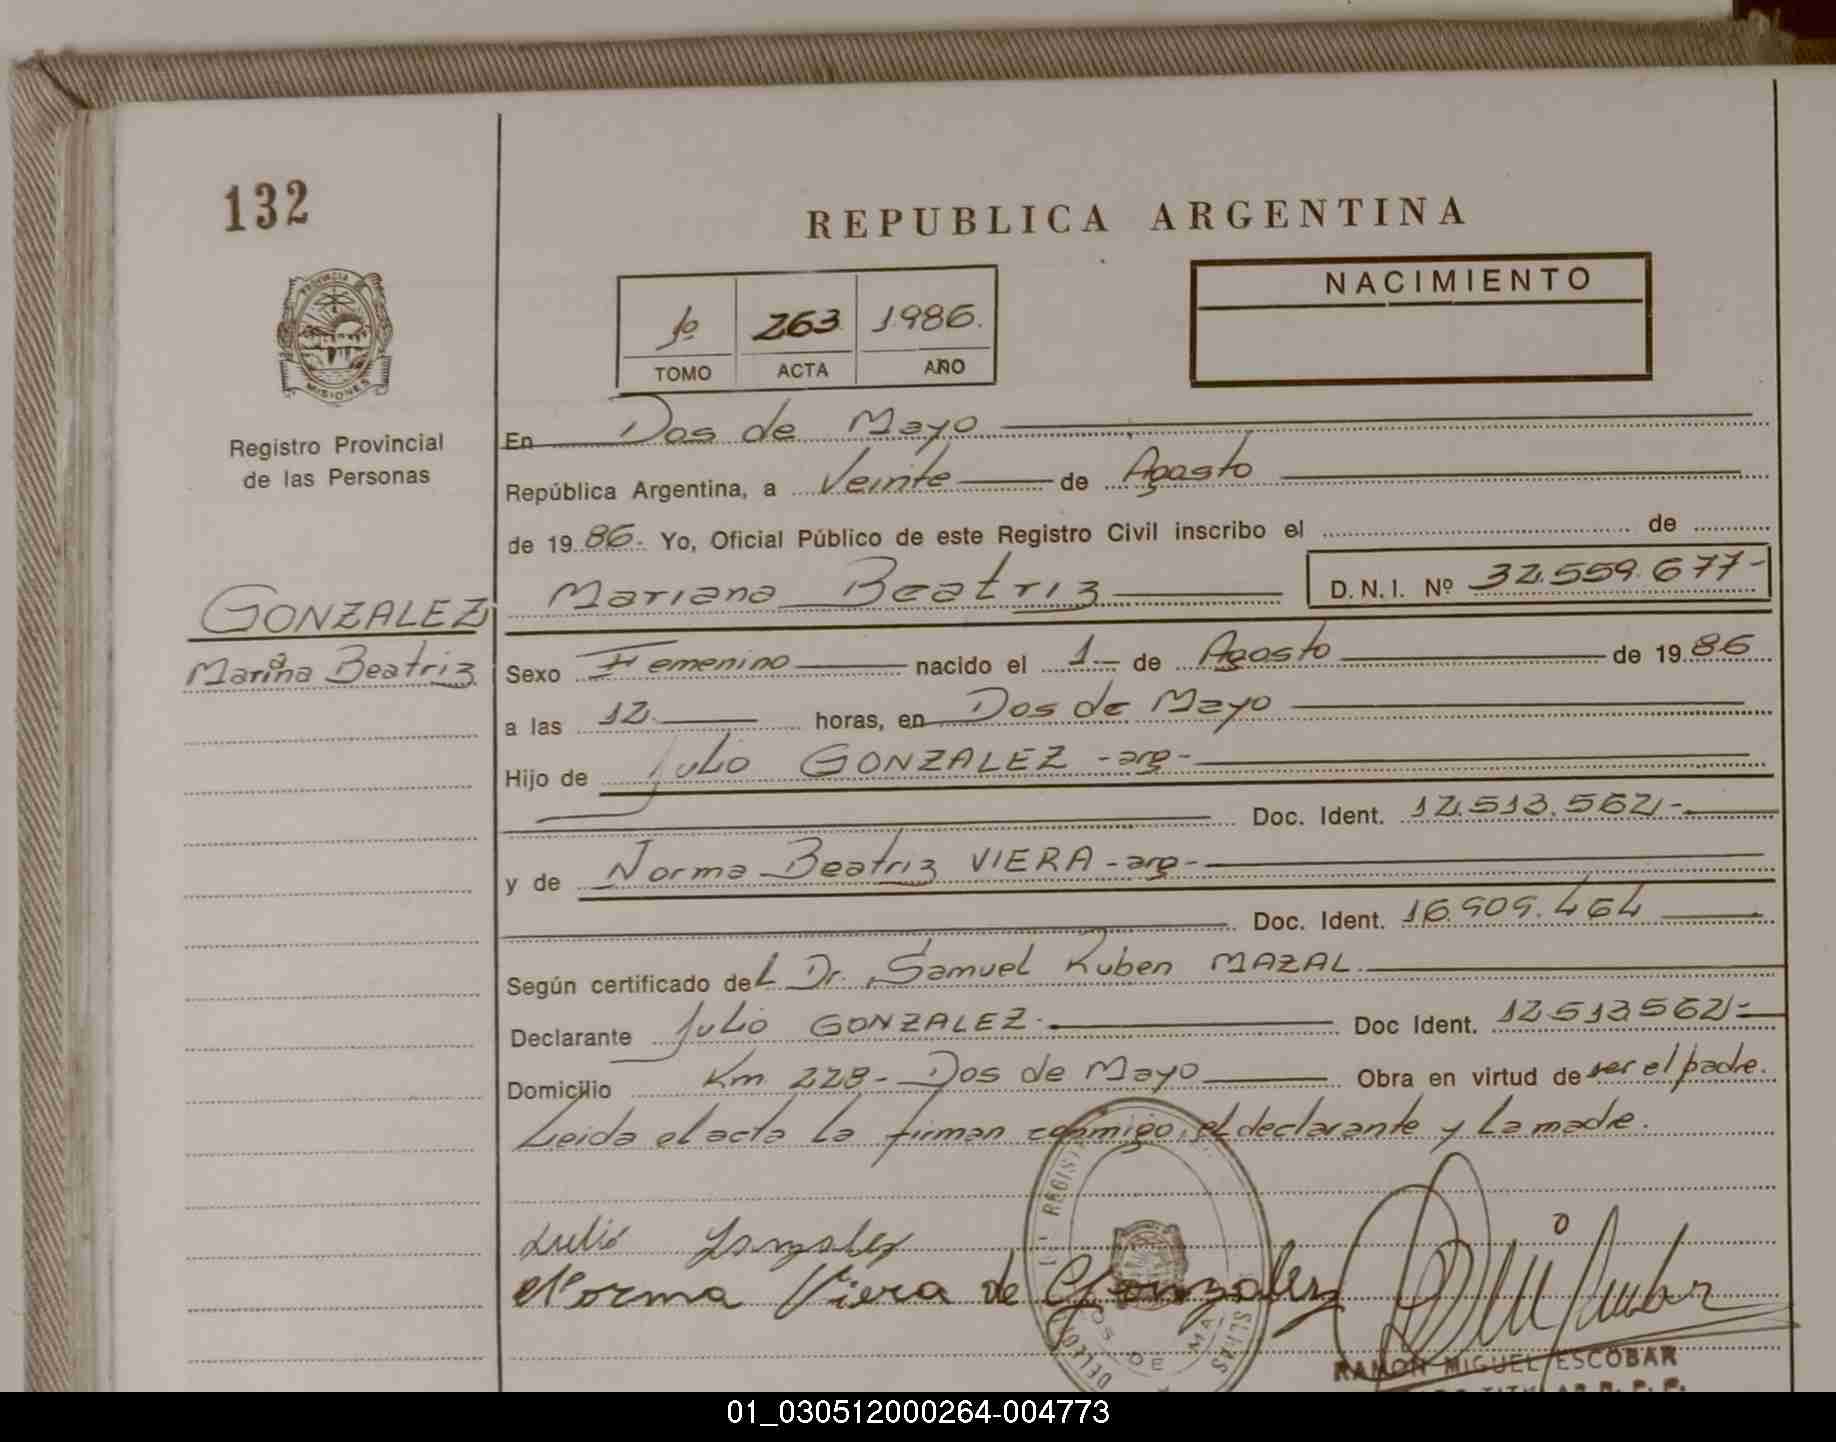 132
REPUBLICA ARGENTINA
PROVINCIA
MISIONES
Registro Provincial
de las Personas
1º 263 1986.
TOMO ACTA AÑO
NACIMIENTO
En Dos de Mayo
República Argentina, a Veinte de Agosto
de 1986. Yo, Oficial Público de este Registro Civil inscribo el de
Mariana Beatriz D.N.I. Nº 32.559.677-
GONZALEZ
Mariana Beatriz
Sexo Femenino nacido el 1 de Agosto de 1986
a las 12 horas, en Dos de Mayo
Hijo de Julio GONZALEZ -arg-
Doc. Ident. 12.513.562.-
y de Norma Beatriz VIERA -arg-
Doc. Ident. 16.909.464
Según certificado del Dr. Samuel Ruben MAZAL.
Declarante Julio GONZALEZ. Doc Ident. 12.513.562.-
Domicilio Km 228- Dos de Mayo Obra en virtud de ser el padre.
Leida el acta la firman conmigo, el declarante y la madre.
Julio Gonzalez
Norma Viera de Gonzalez
DOS DE MAYO
RAMON MIGUEL ESCOBAR
01_030512000264-004773